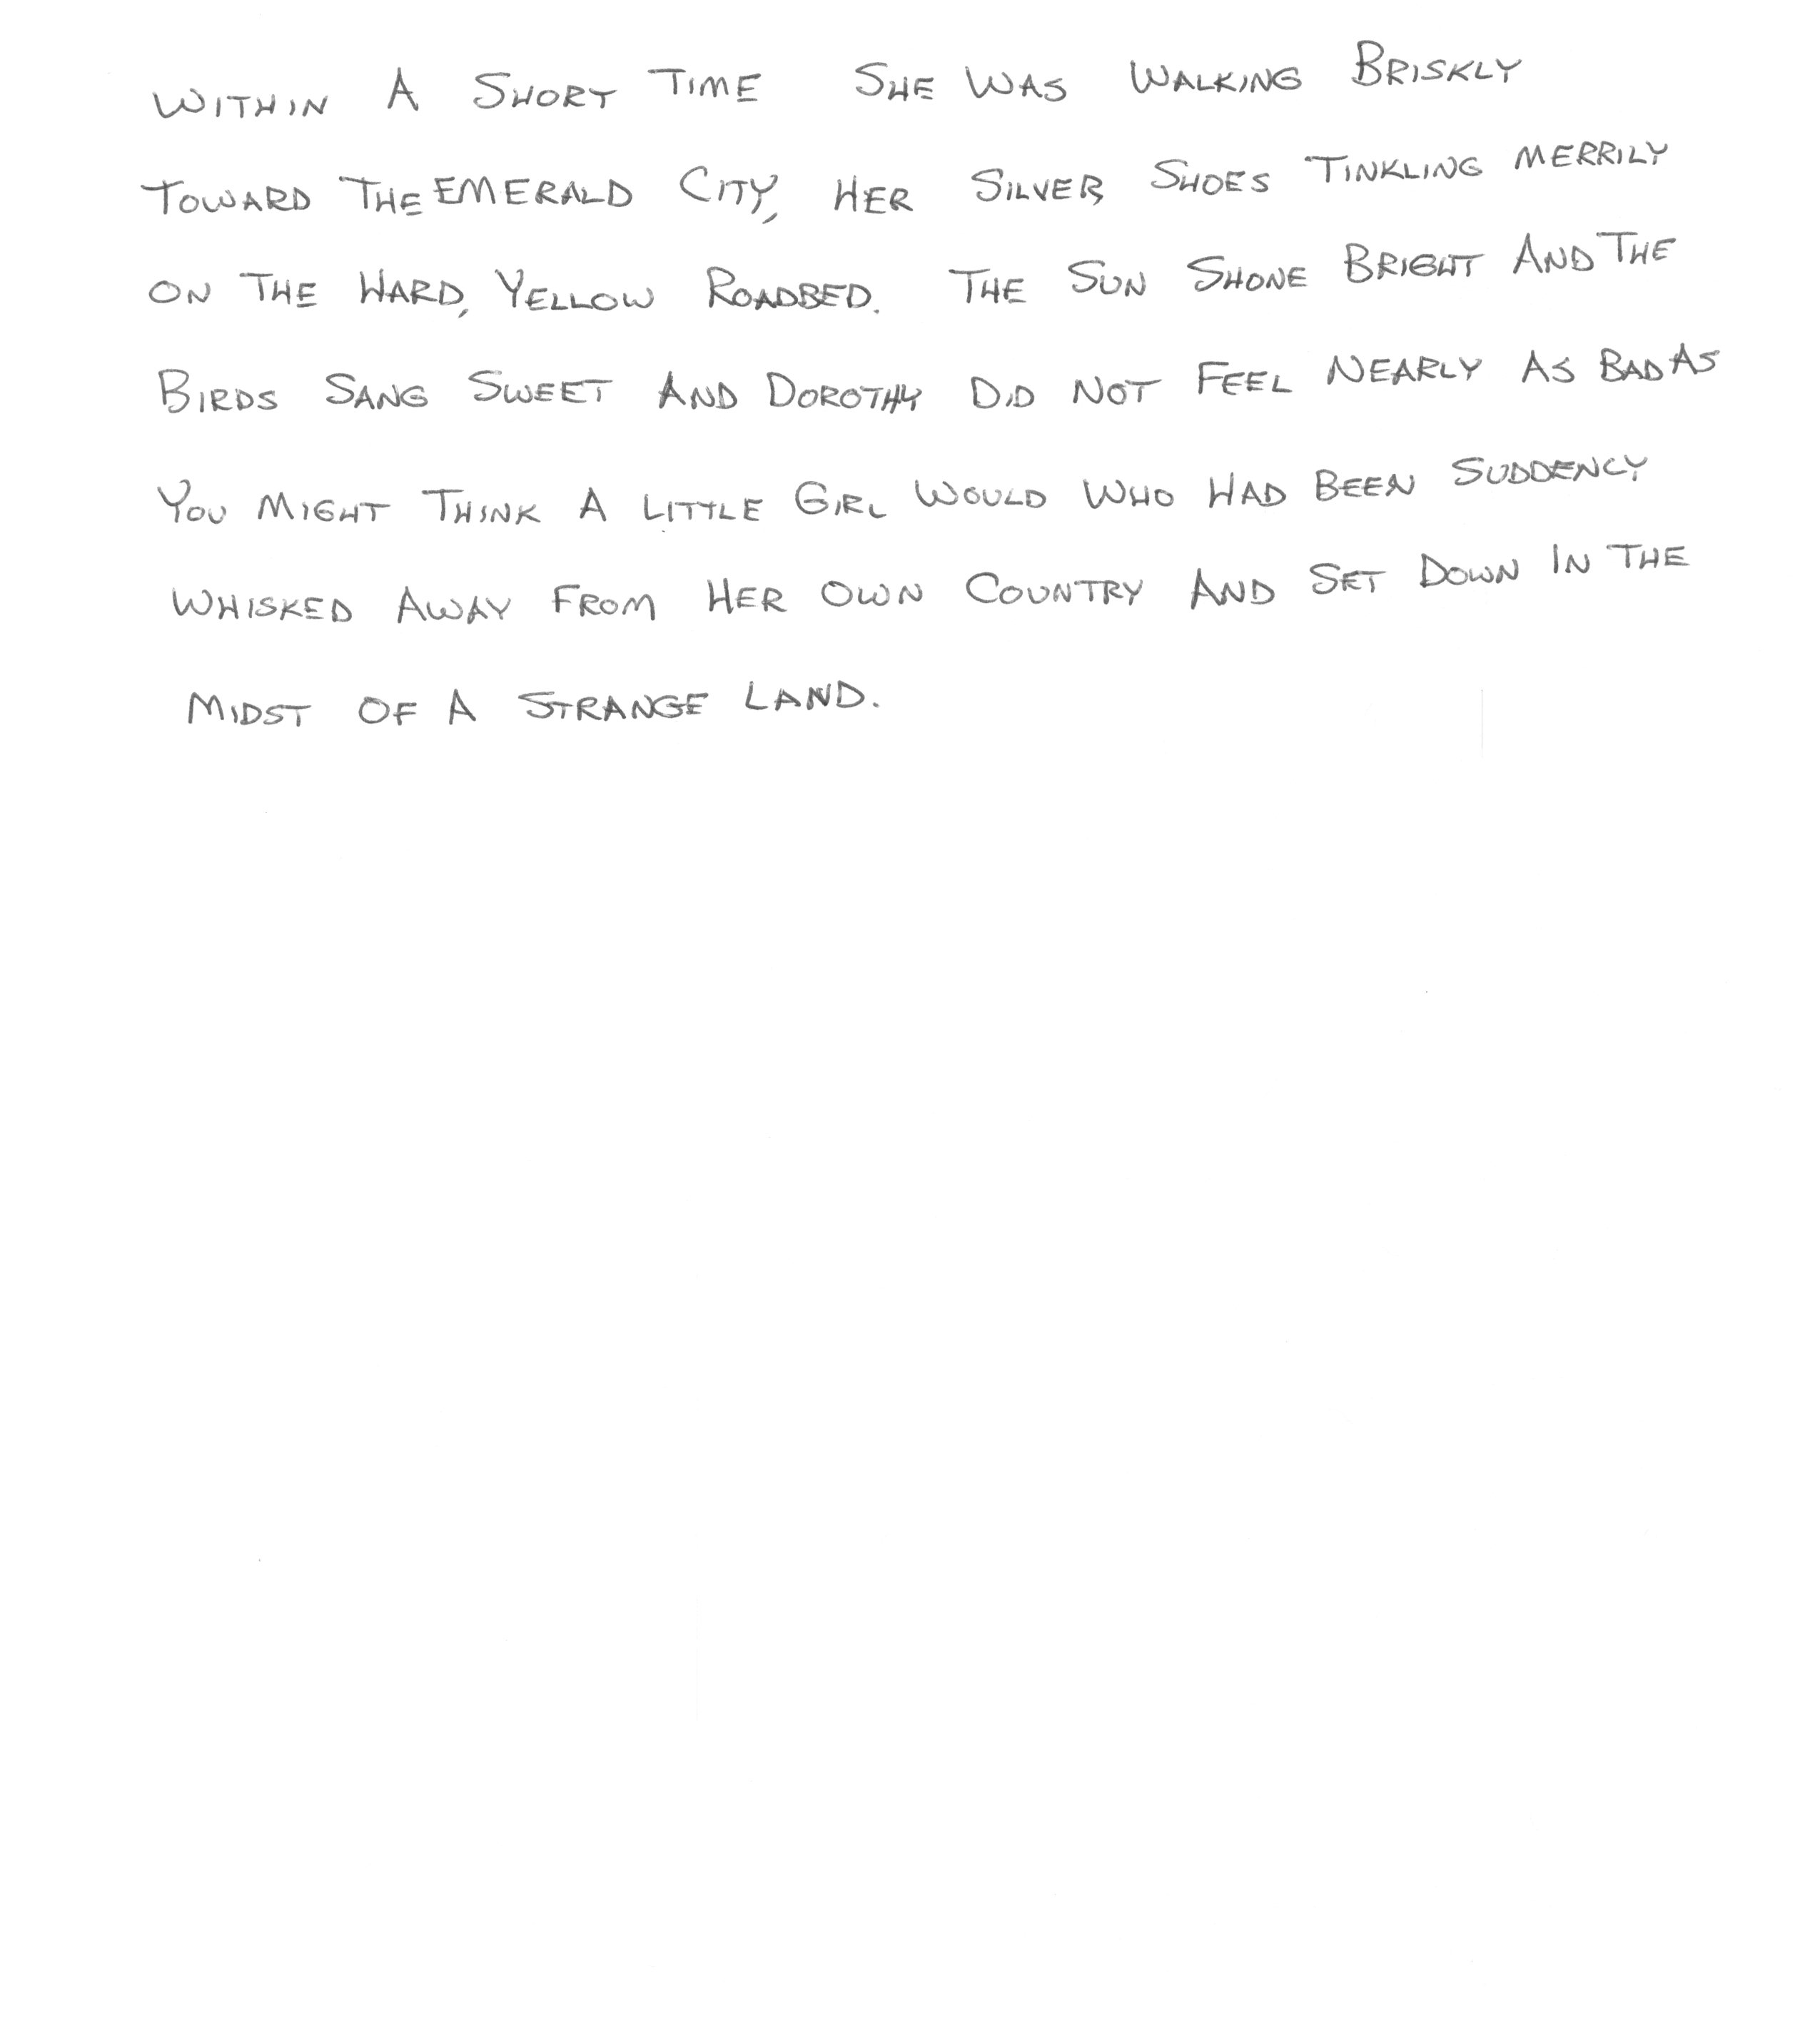 WITHIN A SHORT TIME SHE WAS WALKING BRISKLY
TOWARD THE EMERALD CITY, HER SILVER SHOES TINKLING MERRILY
ON THE HARD, YELLOW ROADBED. THE SUN SHONE BRIGHT AND THE
BIRDS SANG SWEET AND DOROTHY DID NOT FEEL NEARLY AS BAD AS
YOU MIGHT THINK A LITTLE GIRL WOULD WHO HAD BEEN SUDDENLY
WHISKED AWAY FROM HER OWN COUNTRY AND SET DOWN IN THE
MIDST OF A STRANGE LAND.